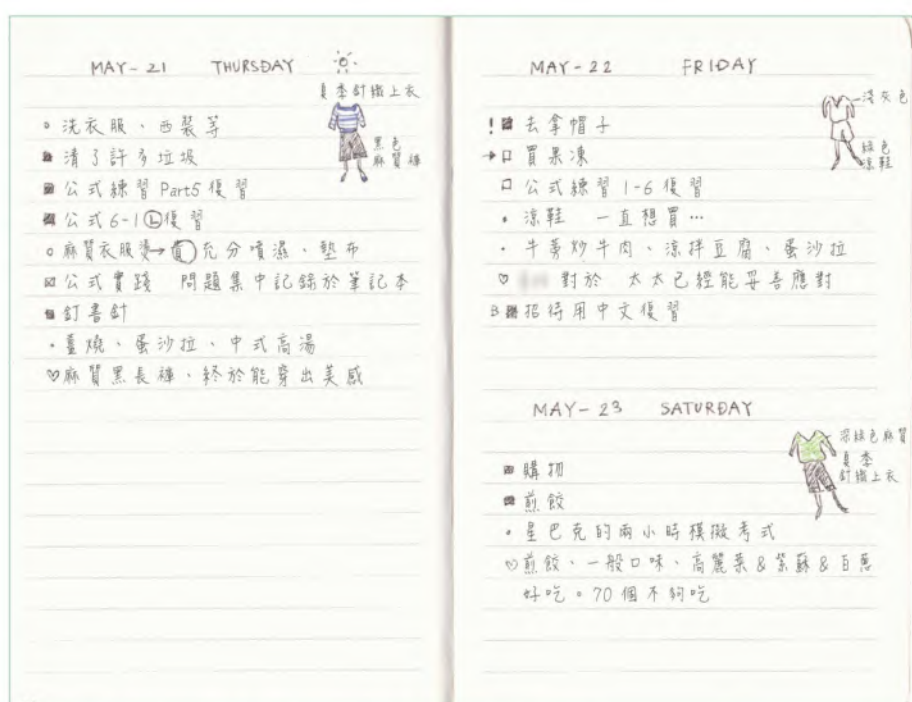 MAY-21 THURSDAY
夏季針織上衣
黑色
麻質褲
洗衣服、西裝等
清了許多垃圾
公式練習 Part5 復習
公式 6-1 Ⓛ 復習
麻質衣服燙→ 充分噴濕、墊布
公式實踐 問題集中記錄於筆記本
釘書針
薑燒、蛋沙拉、中式高湯
♡麻質黑長褲,終於能穿出美感
MAY-22 FRIDAY
淺灰色
綠色
涼鞋
! 去拿帽子
→□ 買果凍
□ 公式練習 1-6 復習
涼鞋 一直想買…
牛蒡炒牛肉、涼拌豆腐、蛋沙拉
♡ 對於 太太已經能妥善應對
B 招待用中文復習
MAY-23 SATURDAY
深綠色麻質
夏季
針織上衣
購物
煎餃
星巴克的兩小時模擬考試
♡煎餃、一般口味、高麗菜&紫蘇&白蔥
好吃。70個不夠吃